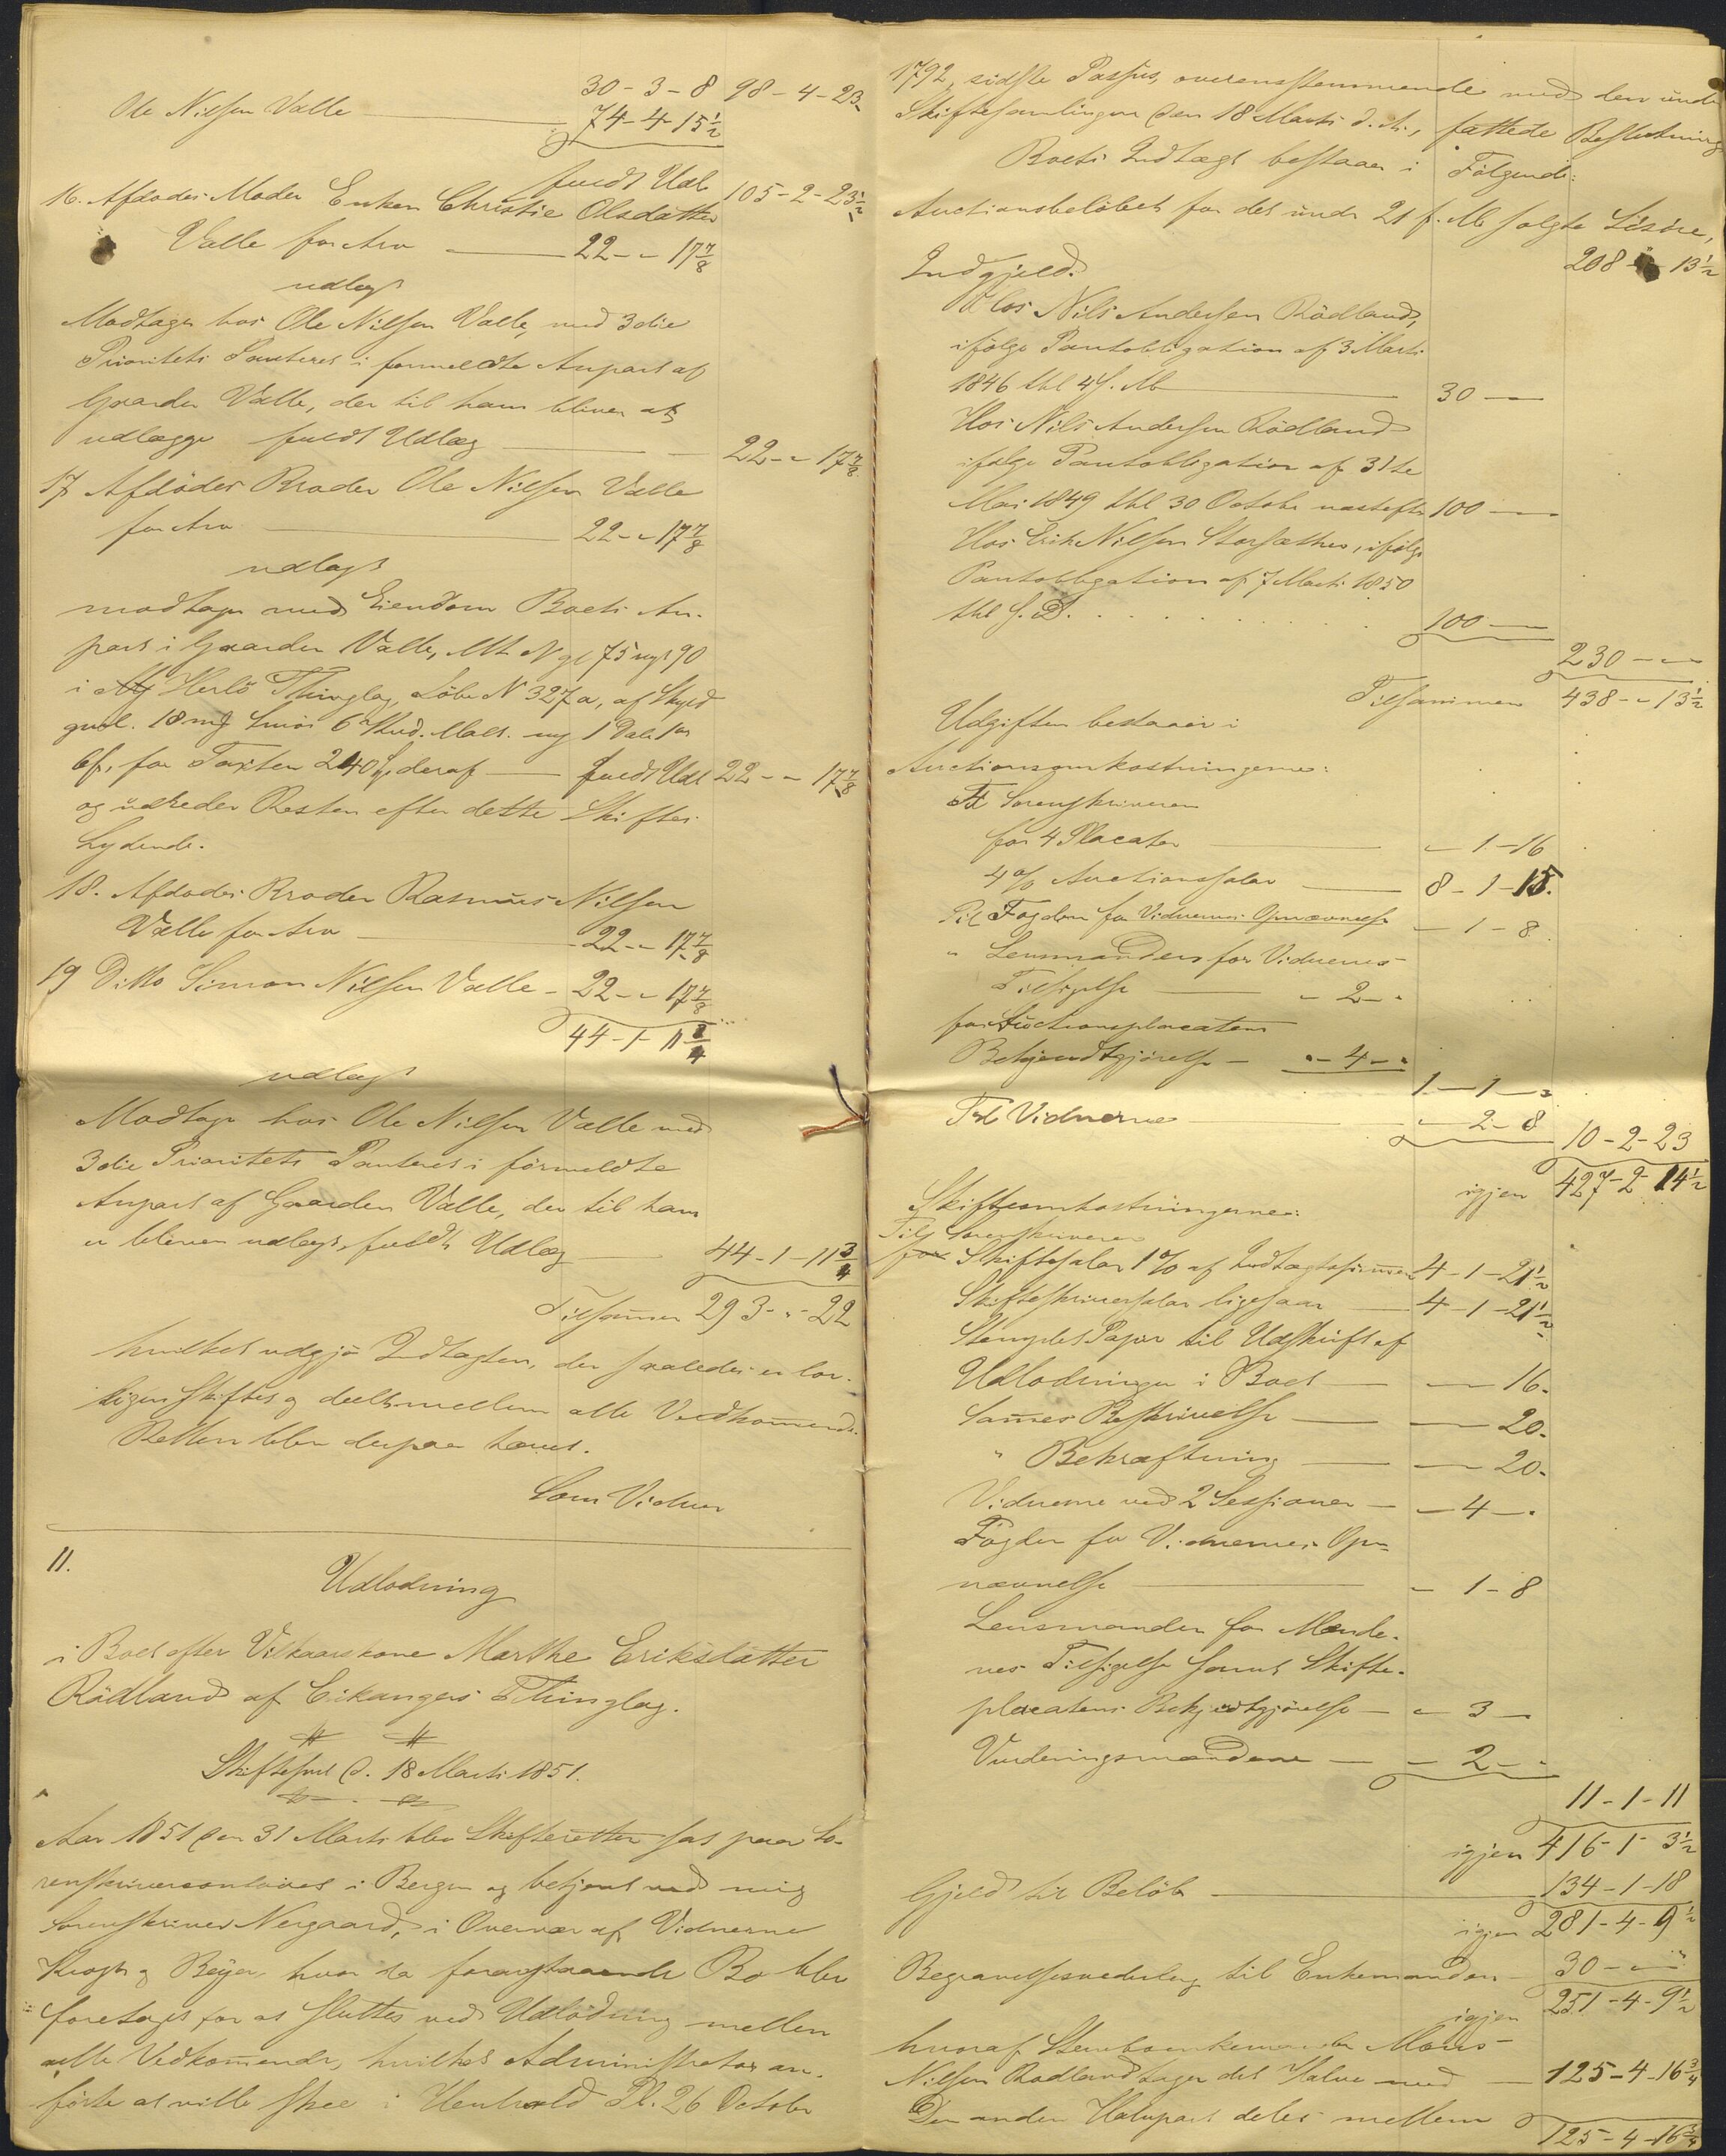 30 - 3 - 8 98 - 4 - 23
Ole Nilsen Valle 74 - 4 - 15½
fuldt Udl 105 - 2 - 23½
16. Afdødes Moder Enken Christie Olsdatter
Valle for Arv 22 - - 17⅞
udlagt
Modtager hos Ole Nilsen Valle, med 3die
Prioritets Panteret i formeldte Anpart af
Gaarden Valle, der til ham bliver at
udlægge fuldt Udlæg 22 - - 17⅞
17 Afdødes Broder Ole Nilsen Valle
for Arv 22 - - 17⅞
udlagt
modtager med Eiendom Boets An-
part i Gaarden Valle, Mt. N gl 75 nyt 90
i Herlø Thinglag, Løbe N 327a, af Skyld
gml. 18 mg Smør 6 Kud. Malt. ny 1 Dale 1 ort
6 s, for Taxten 240 , deraf fuldt Udl 22 - - 17⅞
og udreder Resten efter dette Skiftes
Lydende.
18. Afdødes Broder Rasmus Nilsen
Valle for Arv 22 - - 17⅞
19 Ditto Simon Nilsen Valle - 22 - - 17⅞
44 - 1 - 11¾
udlagt
Modtager hos Ole Nilsen Valle med
3die Prioritets Panteret i formeldte
Anpart af Gaarden Valle, der til ham
er bleven udlagt, fuldt Udlæg 44 - 1 - 11¾
Tilsammen 293 - " - 22
hvilket udgjør Indtægten, der saaledes er lov-
ligen skiftet og deelt mellem alle Vedkommende.
Retten blev derpaa hævet.
Som Vidner
11.
Udlodning
i Boet efter Vilkaarskone Marthe Eriksdatter
Rødland af Eikanger Thinglag.
Skiftesml d. 18 Marts 1851.
Aar 1851 den 31 Marts blev Skifteretten sat paa So-
renskrivercontoiret i Bergen og betjent ved mig
Sorenskriver Nergaard, i Overvær af Vidnerne
Krogh og Beyer, hvor da foranstaaende Bo blev
foretaget, for at sluttes ved Udlodning mellem
alle Vedkommende, hvilket Administrator an-
førte at ville skee i Henhold Pl. 26 October
1792, sidste Passus, overensstemmende med den under
Skiftesamlingen den 18 Marts d. A., fattede Beslutning
Boets Indtægt bestaaer i Følgende:
Auctionsbeløbet for det under 21 f. M. solgte Løsøre,
208 - - 13½
Indgjeld.
Hos Nils Andersen Rødland,
ifølge Pantobligation af 3 Marts
1846 thl 4 s. M. 30 - -
Hos Nils Andersen Rødland
ifølge Pantobligation af 31te
Mai 1849 thl 30 October næstefter 100 - -
Hos Erik Nilsen Storsæther, ifølge
Pantobligation af 7 Marts 1850
thl s. D. 100 - -
230 - -
Tilsammen 438 - - 13½
Udgiften bestaaer i
Auctionsomkostningerne:
Til Sorenskriveren
for 4 Placater - 1 - 16
4% Auctionssalar 8 - 1 - 15.
Til Fogden for Vidnernes Opnævnelse - 1 - 8
" Lensmanden for Vidnernes
Tilsigelse - 2 - "
for Auctionsplacatens
Bekjendtgjørelse - " - 4 - "
1 - 1 - "
Til Vidnerne - 2 - 8
10 - 2 - 23
igjen 427 - 2 - 14½
Skifteomkostningerne:
Til Sorenskriveren
for Skiftesalar 1% af Indtægtssummen 4 - 1 - 21½
Skifteskriversalar ligesaa 4 - 1 - 21½
Stemplet Papir til Udskrift af
Udlodningen i Boet - - 16.
Sammes Beskrivelse - - 20.
" Bekræftning - - 20.
Vidnerne ved 2 Sessioner - - 4 - "
Fogden for Vidnernes Op-
nævnelse - 1 - 8
Lensmanden for Mænde-
nes Tilsigelse samt Skifte-
placatens Bekjendtgjørelse - - 3 -
Vurderingsmændene - - 2 - "
11 - 1 - 11
igjen 416 - 1 - 3½
Gjeld til Beløb 134 - 1 - 18
igjen 281 - 4 - 9½
Begravelsesvederlag til Enkemanden 30 - - "
igjen 251 - 4 - 9½
hvoraf Stervboenkemanden Mons
Nilsen Rødland tager det Halve med 125 - 4 - 16¾
Den anden Halvpart deles mellem 125 - 4 - 16¾